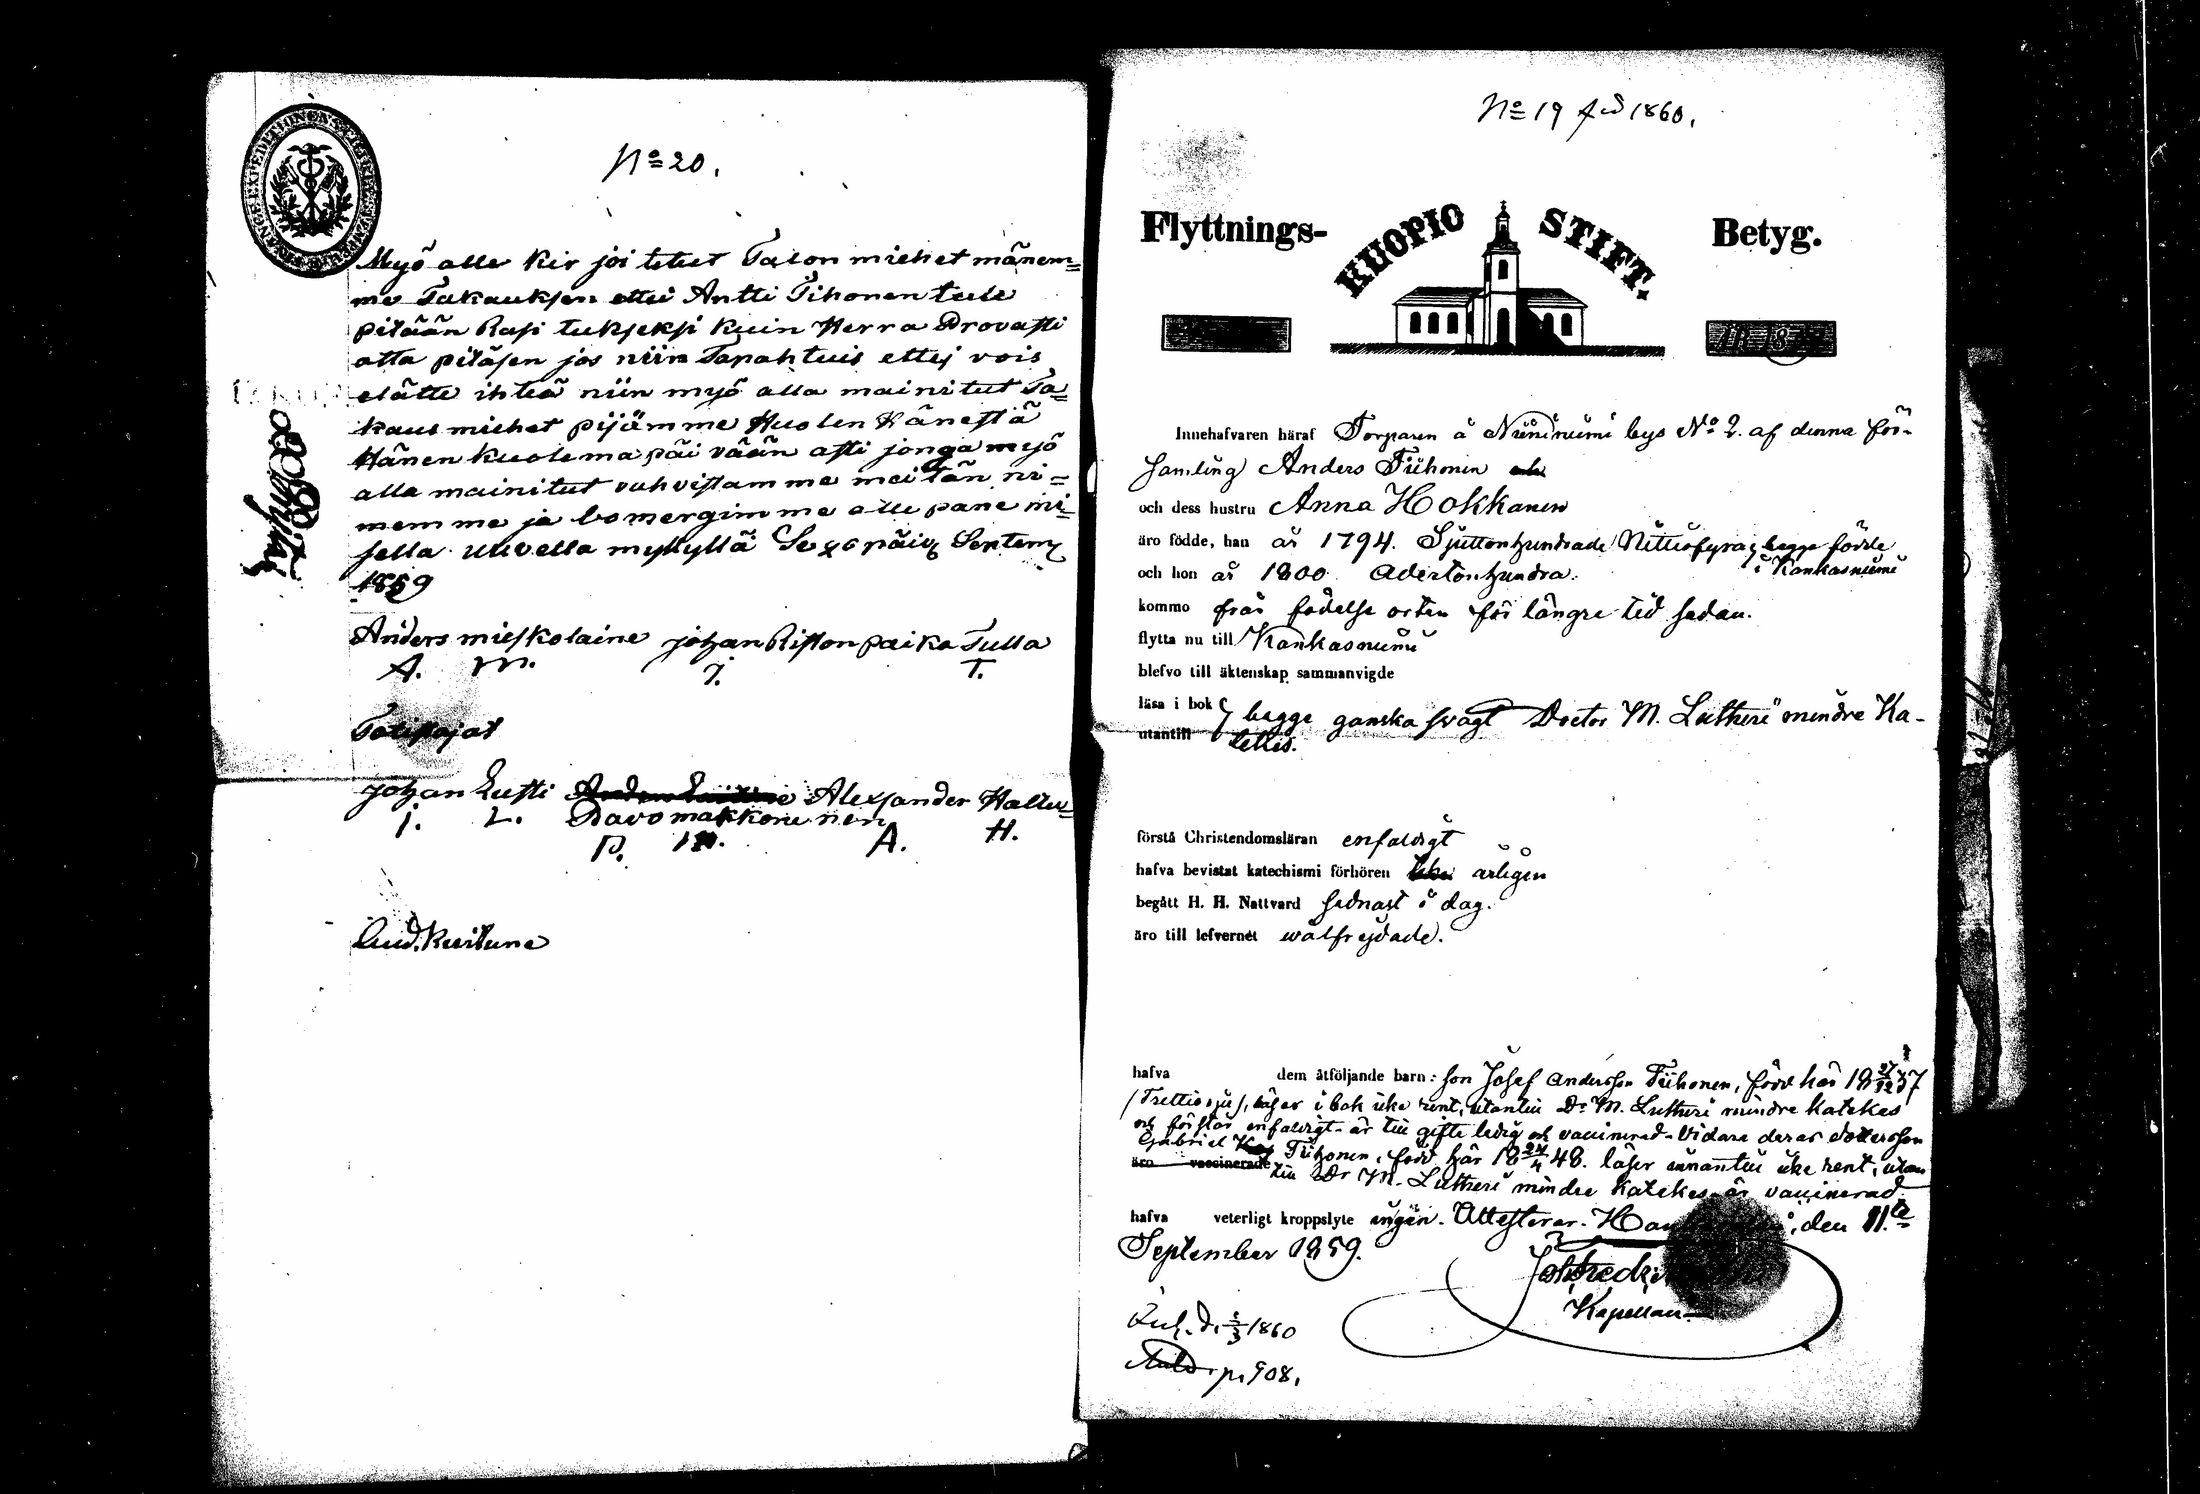 No 20.
Myö alle kir joi tetut Talon miehet mänem=
me Takauksen ettei Antti Tihonen tule
pitään Rasi tukseksi kuin Herra Provasti
otta pitäjen jos niin Tapahtuis ettej vois
elätte ihteä niin myö alla mainitut Ta=
kaus miehet pijämme Huolen Hänestä
Hänen kuolema päi vään asti jonga myö
alla mainitut vahvistamme meitän ni=
memme ja bomergimme alle pane mi=
sella
1859
Anders mieskolaine johan Riston paika Tulla
A. m. J. T.
Totistajat
johan Lusti Alexsander Hallu=
Pavo makkone nen
J. L. P. M. A. H.
No 19 1860.
Flyttnings- KUOPIO STIFT. Betyg.
ÅR 18
Innehafvaren häraf Torparen å Niinimäki bys No 2. af denna för-
samling Anders Tiihonen
och dess hustru Anna Hokkanen
äro födde, han år 1794. Sjuttonhundrade Nittiofyra, begge födde
och hon år 1800 Adertonhundra. i Kankasniemi
kommo från födelse orten för längre tid sedan.
flytta nu till Kankasniemi
blefvo till äktenskap sammanvigde
läsa i bok } begge ganska svagt Doctor M. Lutheri mindre Ka-
utantill tekes.
förstå Christendomsläran enfaldigt
hafva bevistat katechismi förhören årligen
begått H. H. Nattvard sednast i dag.
äro till lefvernet wälfrejdade.
hafva dem åtföljande barn: son Josef Andersson Tiihonen, född här 18 27/12 37
(Trettiosju), läser i bok icke rent, utantill Dr M. Lutheri mindre Katekes
och förstår enfaldigt är till gifte ledig och vaccinerad. Vidare deras dotterson
Gabriel Tiihonen, född här 18 24/4 48. läser innantill icke rent, utan
äro vaccinerade till Dr M. Lutheri mindre Katekes är vaccinerad
hafva veterligt kroppslyte ingen. Attesterar. den 11.te
September 1859.
Kapellan.
1860
p. 908.